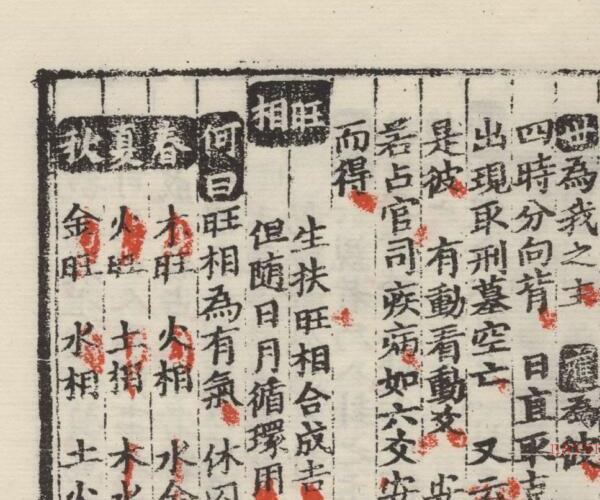 世為我之主 應為彼
四時分向背 日直平
出現取刑墓空亡 又
是彼 有動看動爻
若占官司疾病如六爻安
而得
旺相
生扶旺相合成吉
但随日月循環用
何曰旺相為有氣 休囚
春 木旺 火相 水
夏 火旺 土相 木
秋 金旺 水相 土